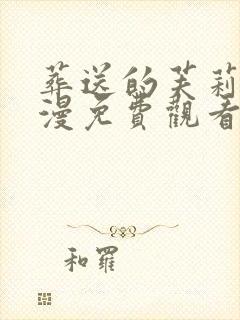 葬送的芙莉
漫免費觀看
和羅